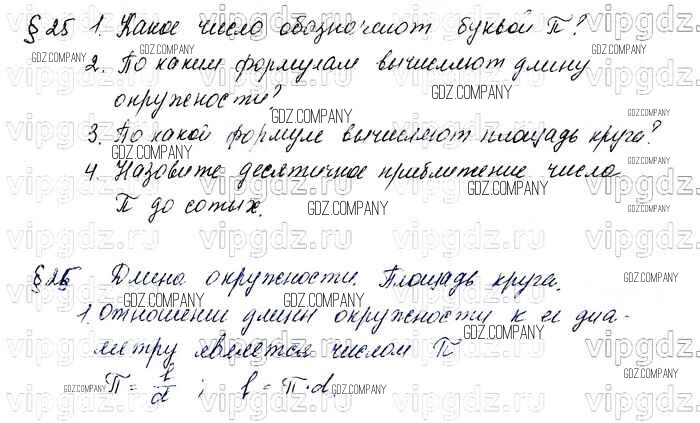 § 25 1. Какое число обозначают буквой П?
2. По каким формулам вычисляют длину
окружности?
3. По какой формуле вычисляют площадь круга?
4. Назовите десятичное приближение числа
П до сотых.
§ 25 Длина окружности. Площадь круга.
1. Отношении длины окружности к ее диа-
метру является числом П
П = l/d ; l = П·d.
GDZ.COMPANY
vipgdz.ru